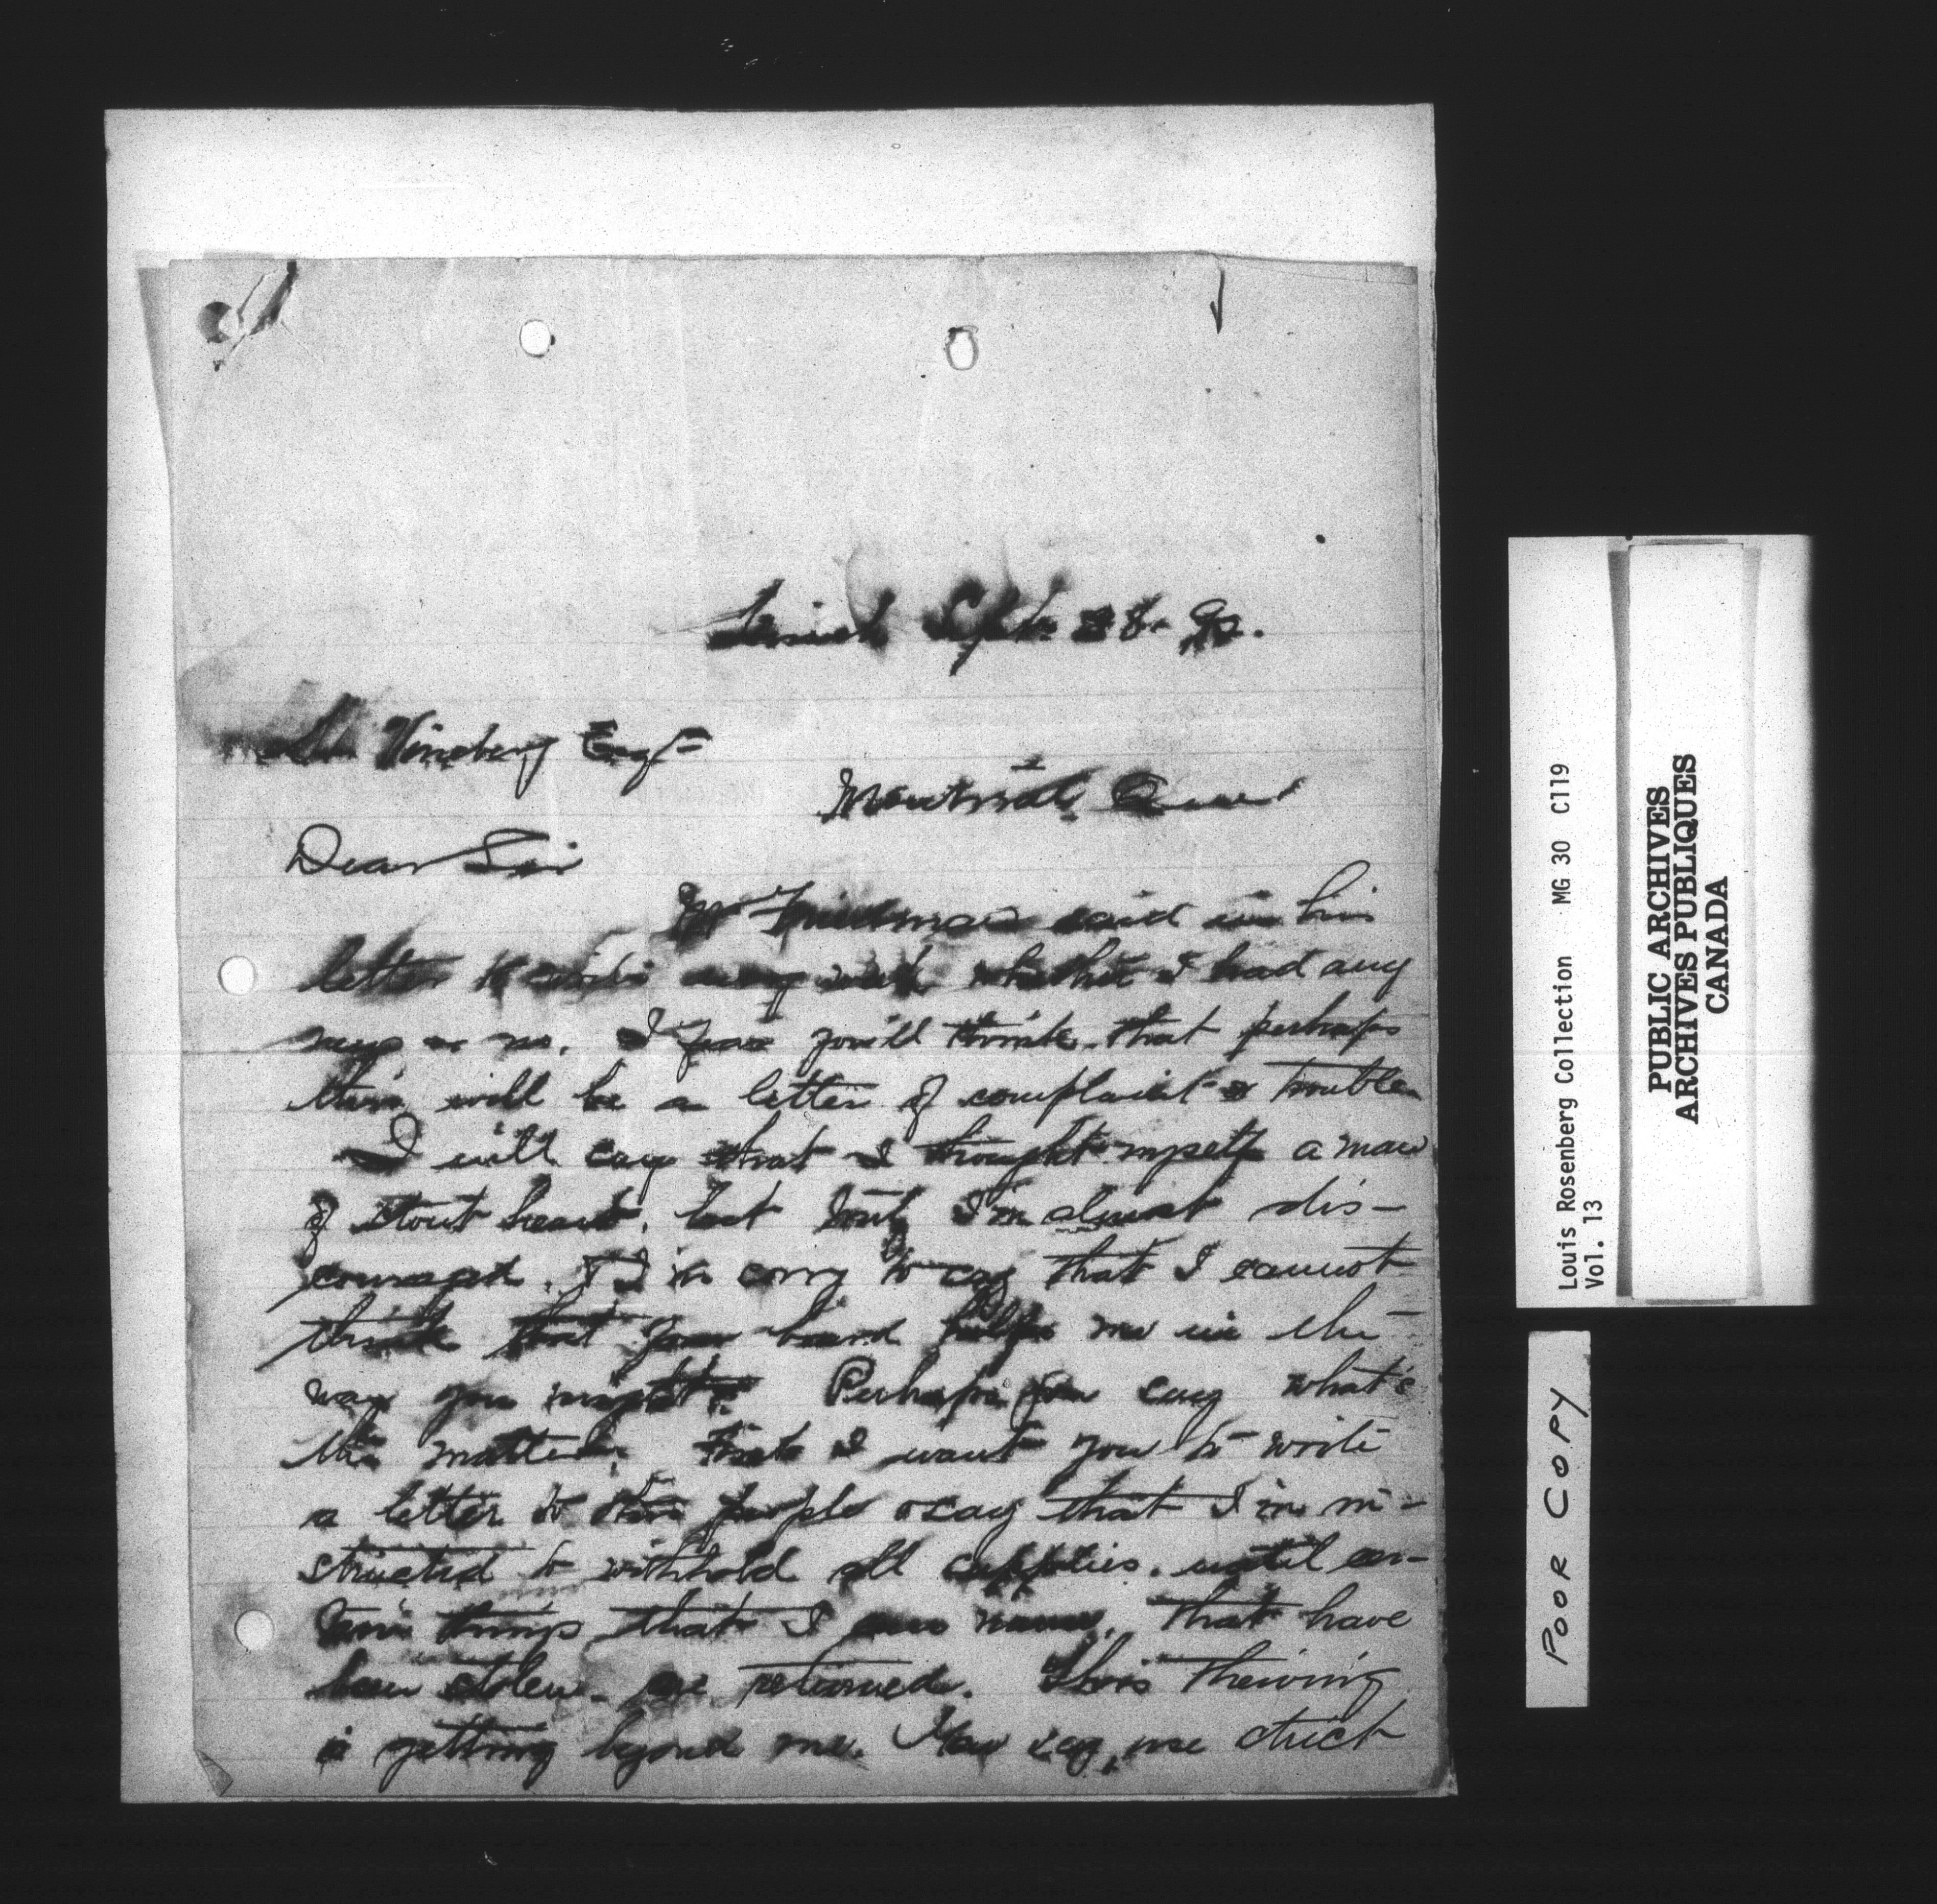 Hirsch Sept. 28. 92.
Vineberg Esq
Montreal Que
Dear Sir
Mr Friedman said in his
letter to write every week whether I had any
news or no. I fear you'll think that perhaps
this will be a letter of complaint & troubles
I will say that I thought myself a man
of stout heart, but I'm almost dis-
couraged. I'm sorry to say that I cannot
think that your board helps me in the
way you might. Perhaps you say what's
the matter. First I want you to write
a letter to the people & say that I'm in-
structed to withhold all supplies, until cer-
tain things that I name, that have
been stolen are returned. This theiving
is getting beyond me. You say, use strict
Louis Rosenberg Collection MG 30 C119
Vol. 13
PUBLIC ARCHIVES
ARCHIVES PUBLIQUES
CANADA
POOR COPY